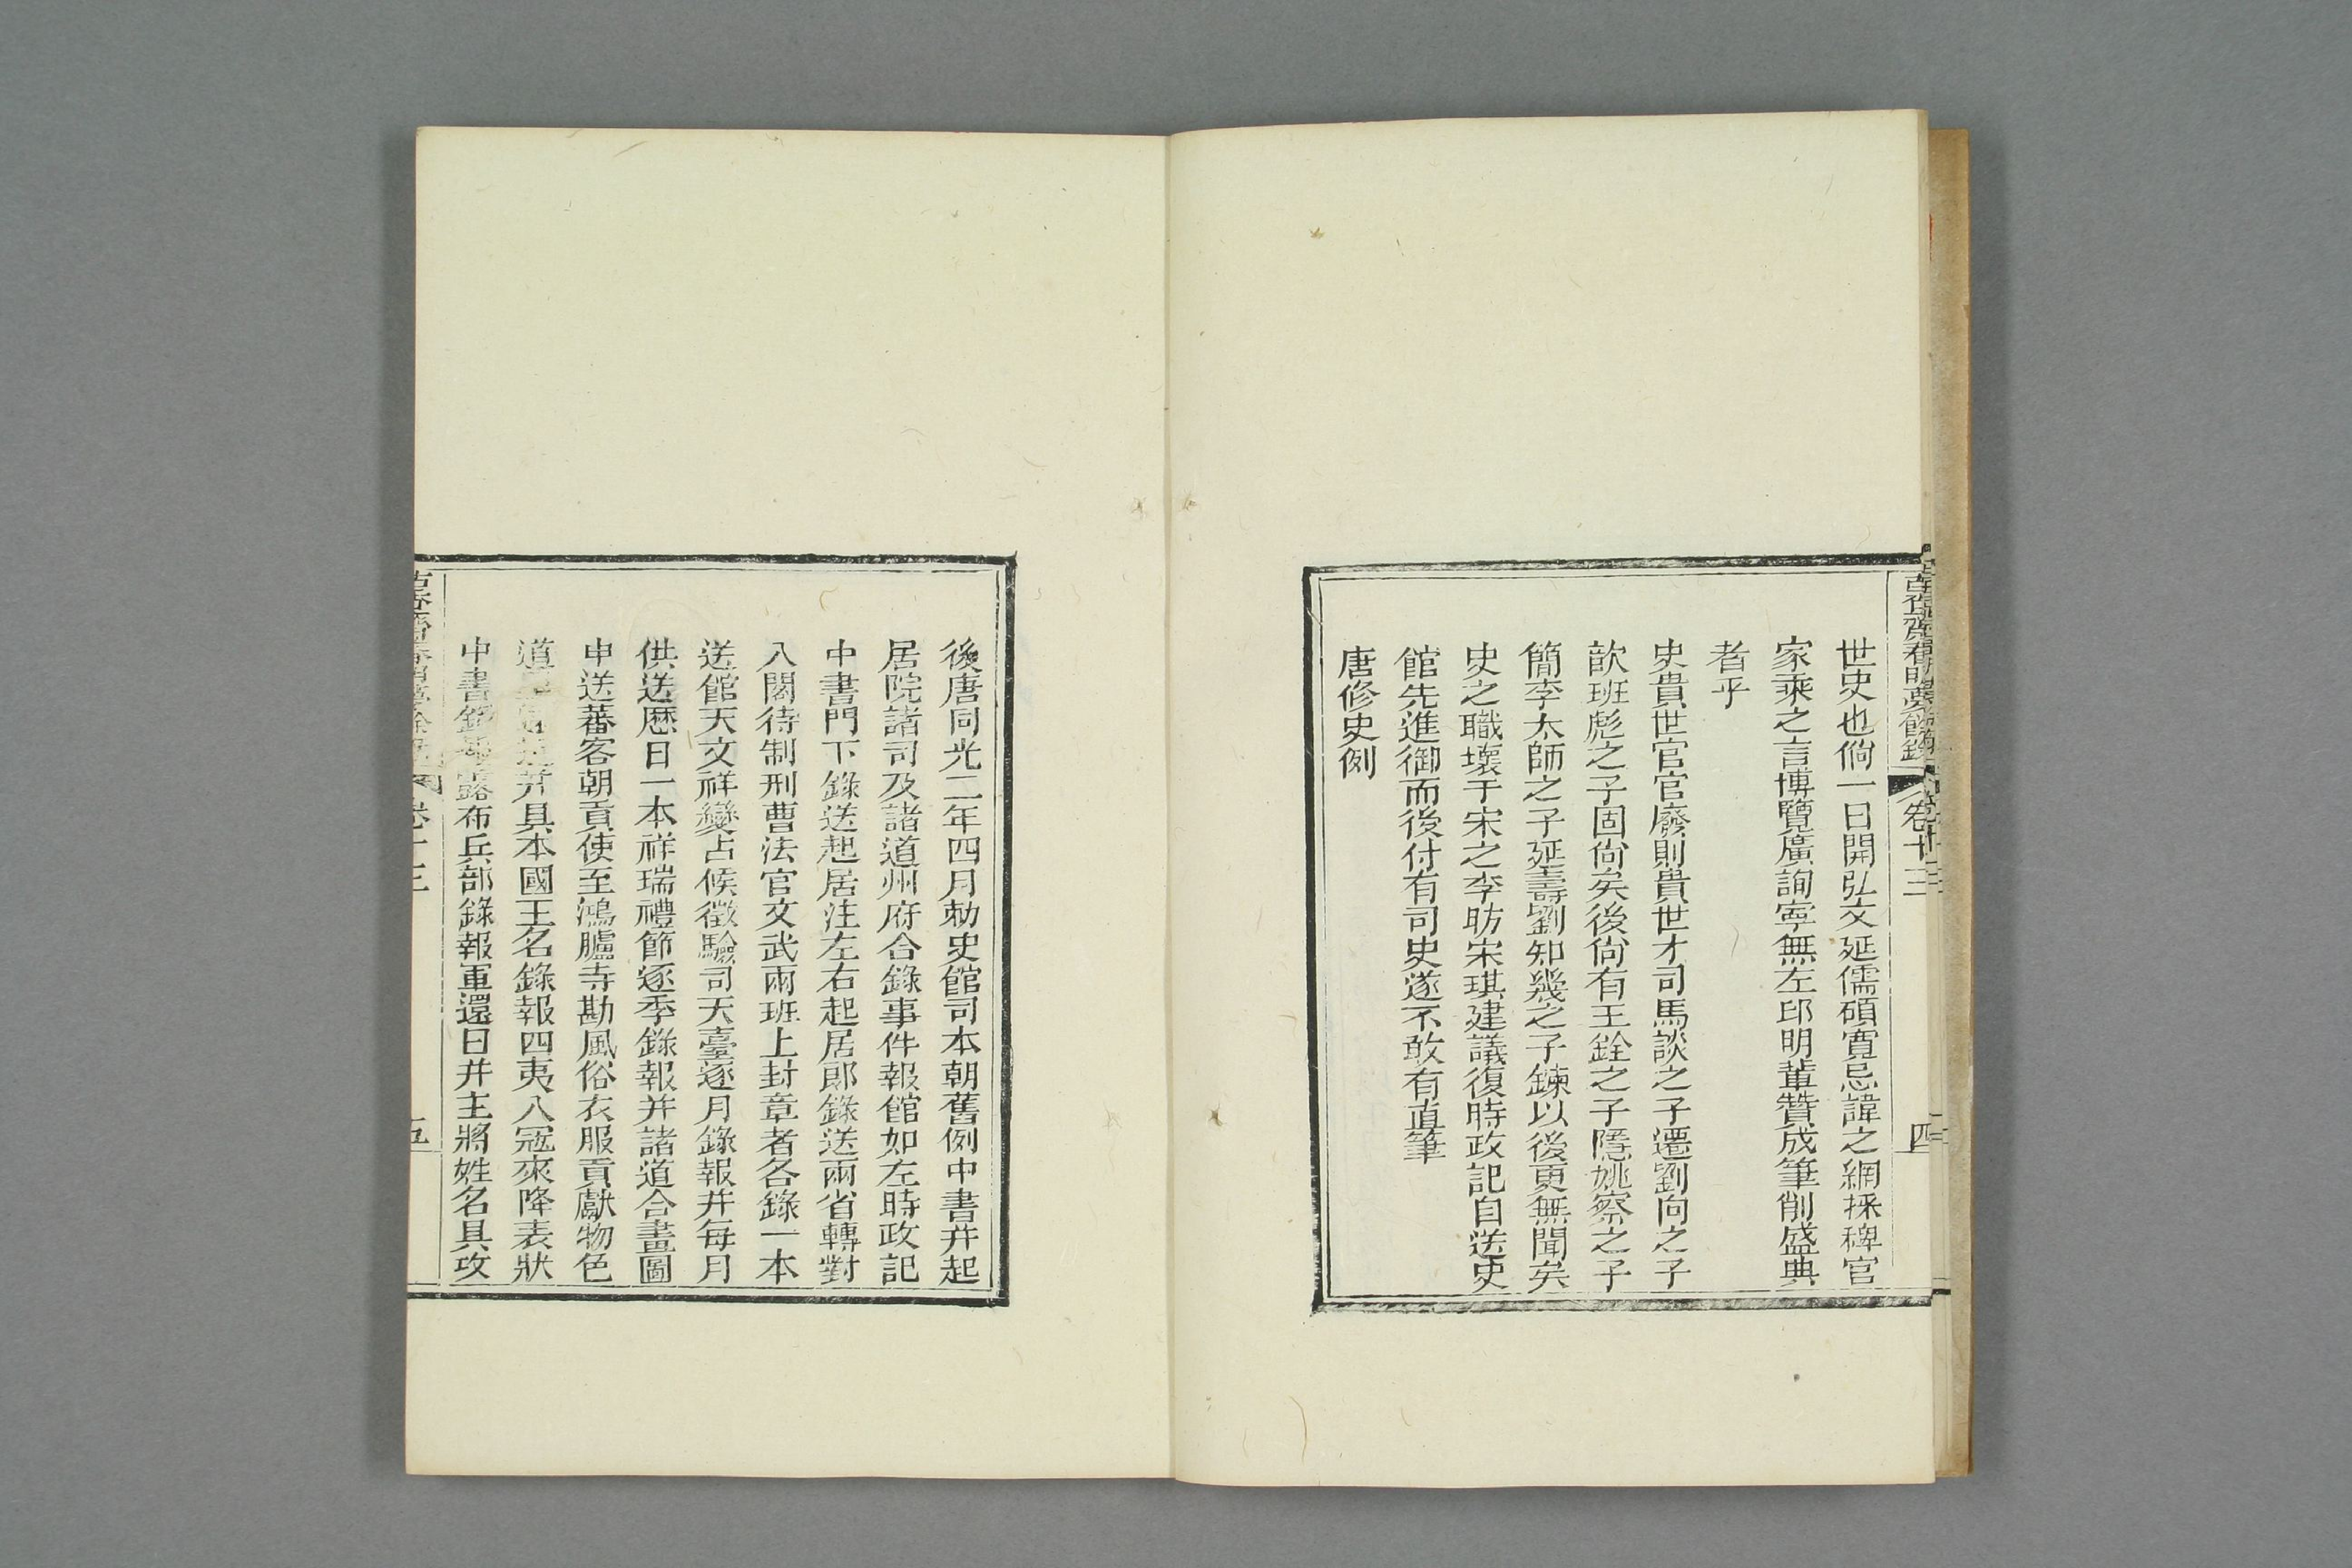 古香齋春明夢餘錄
卷十三
四
世史也倘一日開弘文延儒碩寬忌諱之網採稗官
家乘之言博覽廣詢寧無左邱明輩贊成筆削盛典
者乎
史貴世官官廢則貴世才司馬談之子遷劉向之子
歆班彪之子固尙矣後尙有王銓之子隱姚察之子
簡李太師之子延壽劉知幾之子餗以後更無聞矣
史之職壞于宋之李昉宋琪建議復時政記自送史
館先進御而後付有司史遂不敢有直筆
唐修史例
後唐同光二年四月勅史館司本朝舊例中書并起
居院諸司及諸道州府合錄事件報館如左時政記
中書門下錄送起居注左右起居郎錄送兩省轉對
入閣待制刑曹法官文武兩班上封章者各錄一本
送館天文祥變占候徵驗司天臺逐月錄報并每月
供送歷日一本祥瑞禮節逐季錄報并諸道合畫圖
申送蕃客朝貢使至鴻臚寺勘風俗衣服貢獻物色
道里遠近并具本國王名錄報四夷入寇來降表狀
中書錄報露布兵部錄報軍還日并主將姓名具攻
卷十三
五